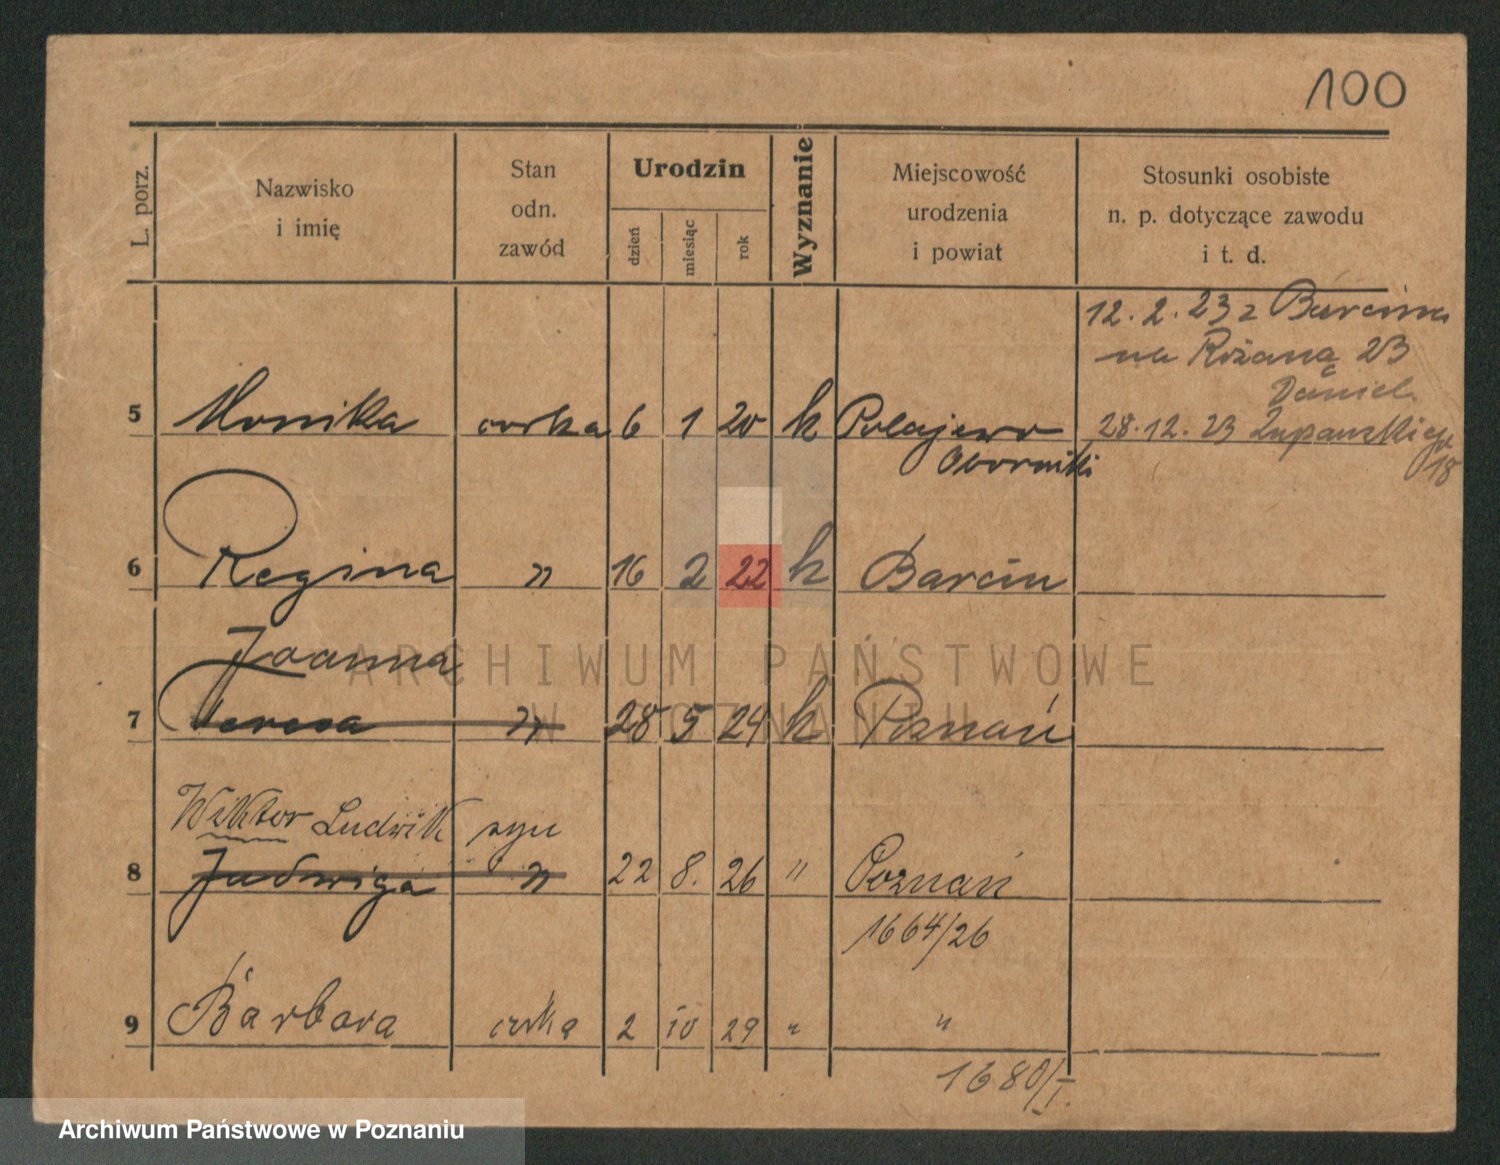 100
L. porz.
Nazwisko i imię
Stan odn. zawód
Urodzin
dzień
miesiąc
rok
Wyznanie
Miejscowość urodzenia i powiat
Stosunki osobiste n. p. dotyczące zawodu i t. d.
12.2.23 z Barcina
na Różaną 23
Daniel.
5 Monika córka 6 1 20 k Połajewo 28.12.23
Oborniki 18
6 Regina " 16 2 22 k Barcin
Joanna
7 Teresa " 28 5 24 k Poznań
Wiktor Ludwik syn
8 Jadwiga " 22 8. 26 " Poznań
1664/26
9 Barbara córka 2 10 29 " "
1680/I.
ARCHIWUM PAŃSTWOWE
W POZNANIU
Archiwum Państwowe w Poznaniu